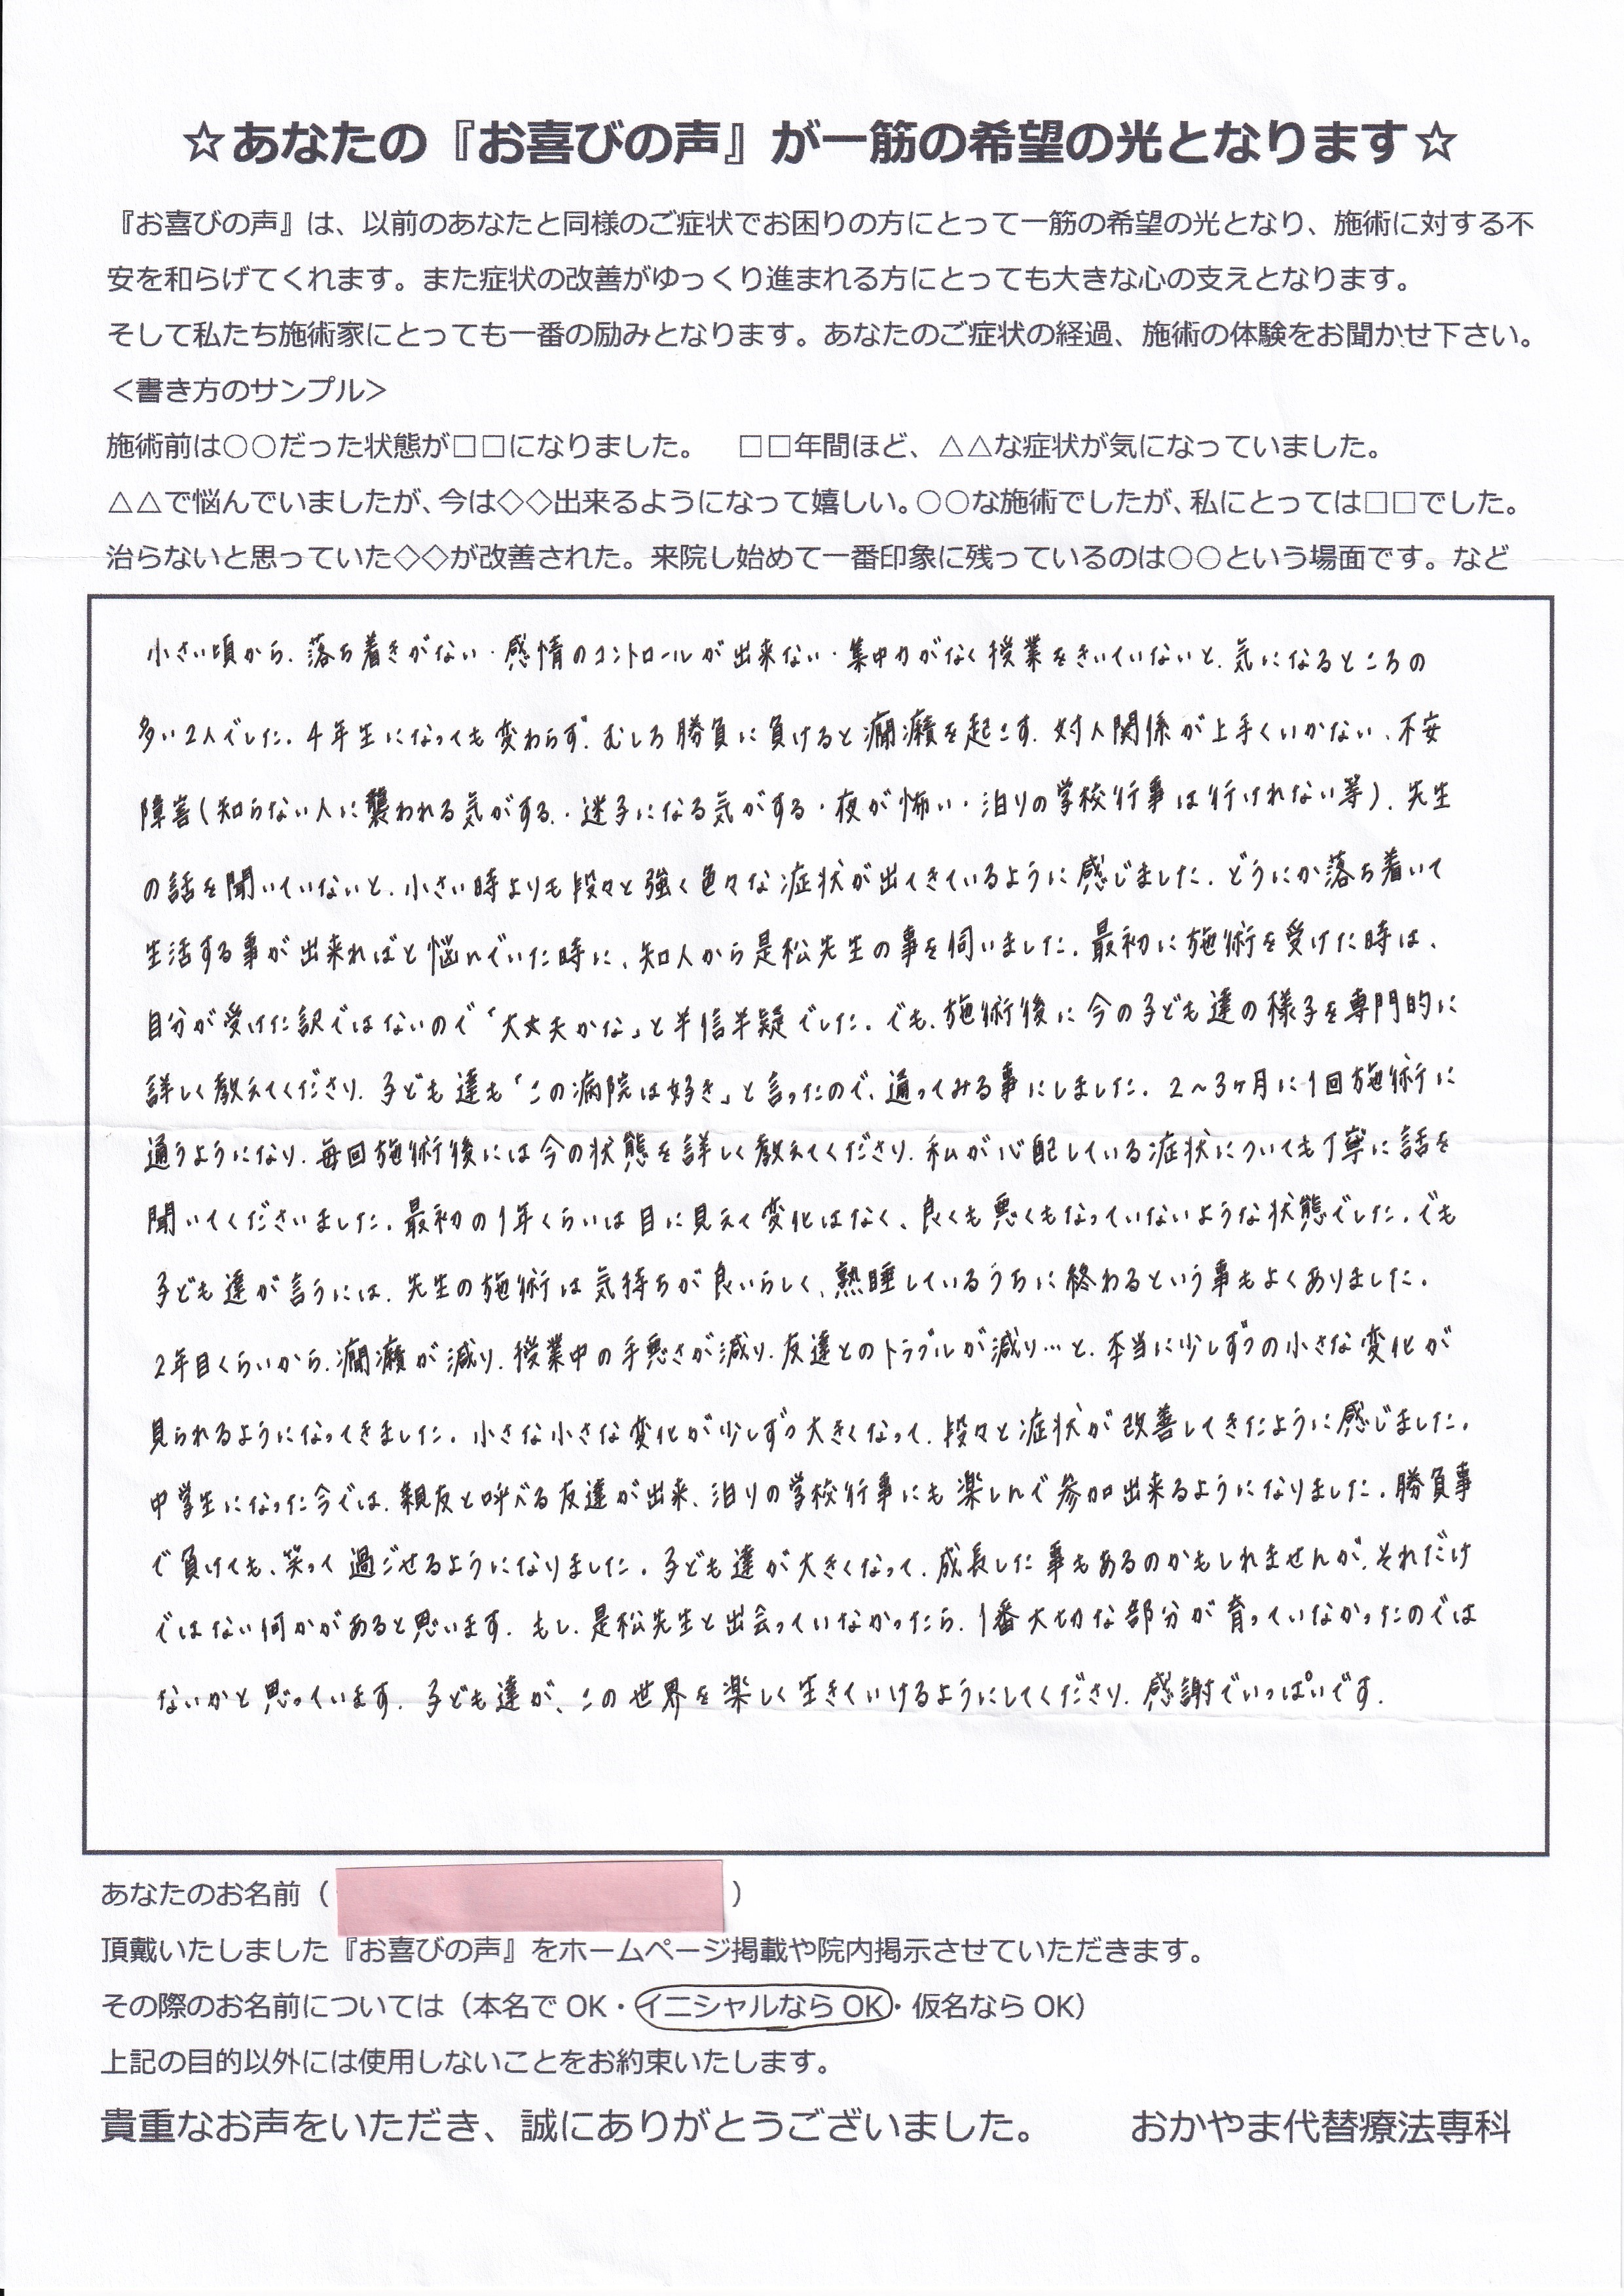 ☆あなたの『お喜びの声』が一筋の希望の光となります☆
『お喜びの声』は、以前のあなたと同様のご症状でお困りの方にとって一筋の希望の光となり、施術に対する不
安を和らげてくれます。また症状の改善がゆっくり進まれる方にとっても大きな心の支えとなります。
そして私たち施術家にとっても一番の励みとなります。あなたのご症状の経過、施術の体験をお聞かせ下さい。
＜書き方のサンプル＞
施術前は○○だった状態が□□になりました。　□□年間ほど、△△な症状が気になっていました。
△△で悩んでいましたが、今は◇◇出来るようになって嬉しい。○○な施術でしたが、私にとっては□□でした。
治らないと思っていた◇◇が改善された。来院し始めて一番印象に残っているのは○○という場面です。など
小さい頃から、落ち着きがない・感情のコントロールが出来ない・集中力がなく授業をきいていないと、気になるところの
多い2人でした。4年生になっても変わらず、むしろ勝負に負けると癇癪を起こす、対人関係が上手くいかない、不安
障害(知らない人に襲われる気がする・迷子になる気がする・夜が怖い・泊りの学校行事は行けれない等)、先生
の話を聞いていないと、小さい時よりも段々と強く色々な症状が出てきているように感じました。どうにか落ち着いて
生活する事が出来ればと悩んでいた時に、知人から是松先生の事を伺いました。最初に施術を受けた時は、
自分が受けた訳ではないので「大丈夫かな」と半信半疑でした。でも、施術後に今の子ども達の様子を専門的に
詳しく教えてくださり、子ども達も「この病院は好き」と言ったので、通ってみる事にしました。2〜3ヶ月に1回施術に
通うようになり、毎回施術後には今の状態を詳しく教えてくださり、私が心配している症状についても丁寧に話を
聞いてくださいました。最初の1年くらいは目に見えて変化はなく、良くも悪くもなっていないような状態でした。でも
子ども達が言うには、先生の施術は気持ちが良いらしく、熟睡しているうちに終わるという事もよくありました。
2年目くらいから、癇癪が減り、授業中の手悪さが減り、友達とのトラブルが減り…と、本当に少しずつの小さな変化が
見られるようになってきました。小さな小さな変化が少しずつ大きくなって、段々と症状が改善してきたように感じました。
中学生になった今では、親友と呼べる友達が出来、泊りの学校行事にも楽しんで参加出来るようになりました。勝負事
で負けても、笑って過ごせるようになりました。子ども達が大きくなって、成長した事もあるのかもしれませんが、それだけ
ではない何かがあると思います。もし、是松先生と出会っていなかったら、1番大切な部分が育っていなかったのでは
ないかと思っています。子ども達が、この世界を楽しく生きていけるようにしてくださり、感謝でいっぱいです。
あなたのお名前（　）
頂戴いたしました『お喜びの声』をホームページ掲載や院内掲示させていただきます。
その際のお名前については（本名で OK・イニシャルなら OK・仮名なら OK）
上記の目的以外には使用しないことをお約束いたします。
貴重なお声をいただき、誠にありがとうございました。　おかやま代替療法専科